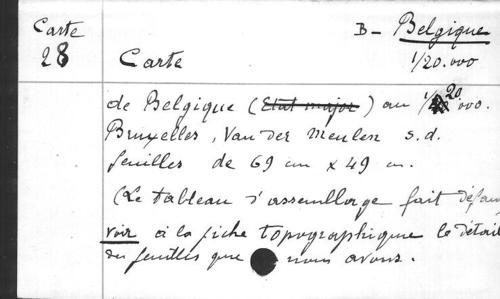 Carte
28
B - Belgique
1/20.000
Carte
de Belgique (Etat major) au 1/20.000.
Bruxelles, Van Der Meulen s.d.
feuilles de 69 cm x 49 cm.
(Le tableau d'assemblage fait défau
voir à la fiche topographique le détail
des feuilles que nous avons.